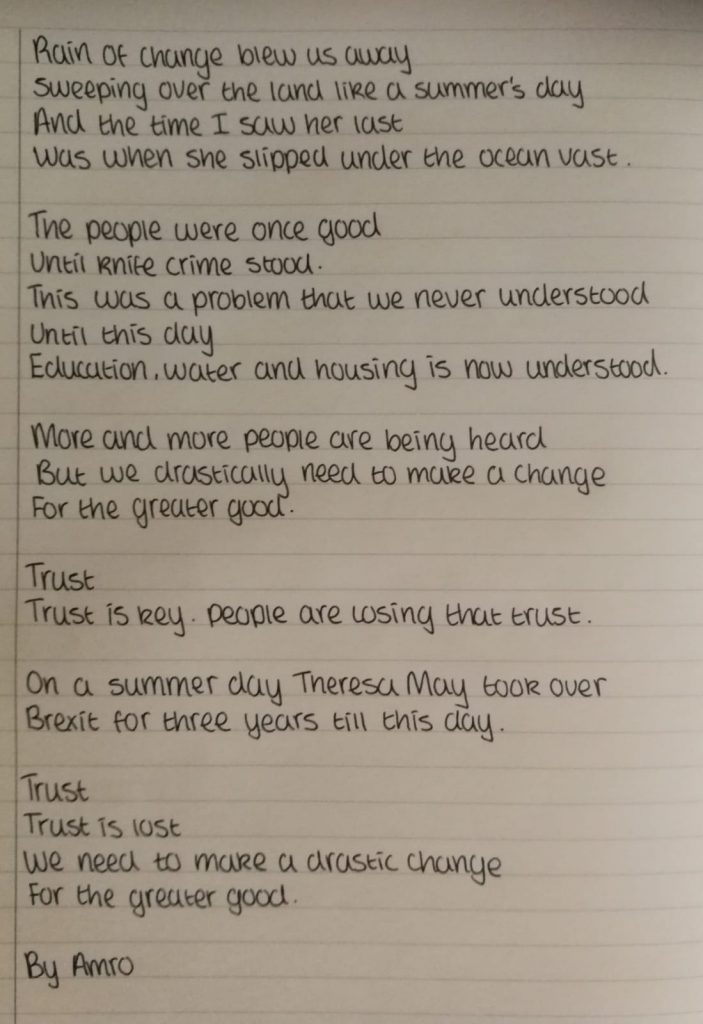 Rain of change blew us away
Sweeping over the land like a summer's day
And the time I saw her last
Was when she slipped under the ocean vast.
The people were once good
Until knife crime stood.
This was a problem that we never understood
Until this day
Education, water and housing is now understood.
More and more people are being heard
But we drastically need to make a change
For the greater good.
Trust
Trust is key. People are losing that trust.
On a summer day Theresa May took over
Brexit for three years till this day.
Trust
Trust is lost
We need to make a drastic change
For the greater good.
By Amro